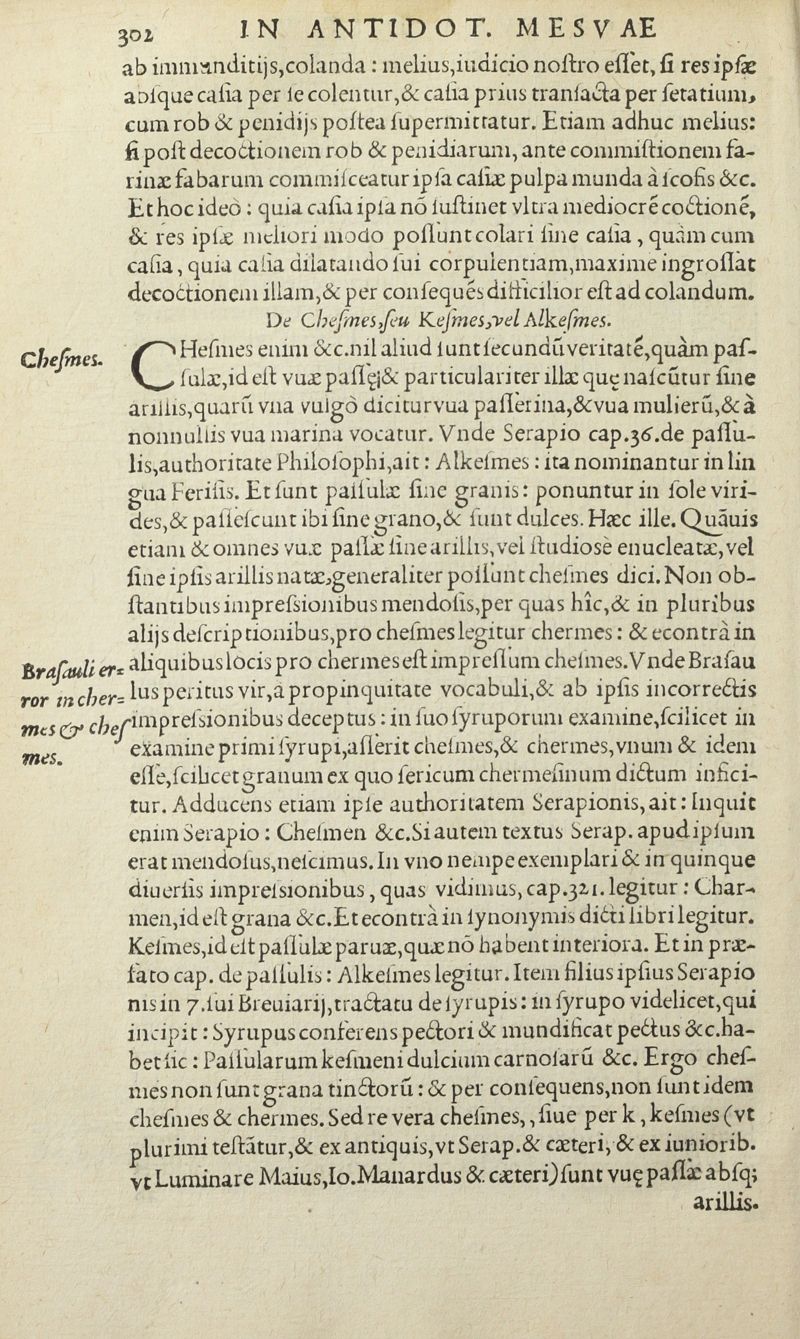 302 IN ANTIDOT. MESVAE
ab immunditijs,colanda : melius,iudicio noſtro eſſet, ſi res ipſæ
abſque caſia per ſe colentur,& caſia prius tranſacta per ſetatium,
cum rob & penidijs poſtea ſupermittatur. Etiam adhuc melius:
ſi poſt decoctionem rob & penidiarum, ante commiſtionem fa-
rinæ fabarum commiſceatur ipſa caſiæ pulpa munda à ſcofis &c.
Et hoc ideò : quia caſia ipſa nō ſuſtinet vltra mediocrē coctionē,
& res ipſæ meliori modo poſſunt colari ſine caſia , quàm cum
caſia , quia caſia dilatando ſui corpulentiam,maxime ingroſſat
decoctionem illam,& per conſequēs difficilior eſt ad colandum.
De Cheſmes,ſeu Keſmes,vel Alkeſmes.
Cheſmes.
CHeſmes enim &c.nil aliud ſunt ſecundū veritatē,quàm paſ-
ſulæ,id eſt vuæ paſſę,& particulariter illæ quę naſcūtur ſine
arillis,quarū vna vulgò dicitur vua paſſerina,& vua mulierū,& à
nonnullis vua marina vocatur. Vnde Serapio cap.36.de paſſu-
lis,authoritate Philoſophi,ait : Alkeſmes : ita nominantur in lin
gua Feriſis. Et ſunt paſſulæ ſine granis : ponuntur in ſole viri-
des,& palleſcunt ibi ſine grano,& ſunt dulces. Hæc ille. Quāuis
etiam & omnes vuæ paſſæ ſine arillis, vel ſtudiosè enucleatæ,vel
ſine ipſis arillis natæ,generaliter poſſunt cheſmes dici. Non ob-
ſtantibus impreſsionibus mendoſis,per quas hîc,& in pluribus
alijs deſcriptionibus,pro cheſmes legitur chermes : & econtrà in
Braſauli er=
ror in cher=
mes & cheſ
mes.
aliquibus locis pro chermes eſt impreſſum cheſmes. Vnde Braſau
lus peritus vir,à propinquitate vocabuli,& ab ipſis incorrectis
impreſsionibus deceptus : in ſuo ſyruporum examine,ſcilicet in
examine primi ſyrupi,aſſerit cheſmes,& chermes,vnum & idem
eſſe,ſcilicet granum ex quo ſericum chermeſinum dictum infici-
tur. Adducens etiam ipſe authoritatem Serapionis, ait : Inquit
enim Serapio : Cheſmen &c. Si autem textus Serap. apud ipſum
erat mendoſus,neſcimus. In vno nempe exemplari & in quinque
diuerſis impreſsionibus , quas vidimus, cap.321. legitur : Char-
men,id eſt grana &c. Et econtrà in ſynonymis dicti libri legitur.
Keſmes,id eſt paſſulæ paruæ,quæ nō habent interiora. Et in præ-
fato cap. de paſſulis : Alkeſmes legitur. Item filius ipſius Serapio
nis in 7.ſui Breuiarij,tractatu de ſyrupis : in ſyrupo videlicet,qui
incipit : Syrupus conferens pectori & mundificat pectus &c.ha-
bet ſic : Paſſularum keſmeni dulcium carnoſarū &c. Ergo cheſ-
mes non ſunt grana tinctorū : & per conſequens,non ſunt idem
cheſmes & chermes. Sed re vera cheſmes, , ſiue per k , keſmes (vt
plurimi teſtātur,& ex antiquis,vt Serap. & cæteri, & ex iuniorib.
vt Luminare Maius,Io.Manardus & cæteri) ſunt vuę paſſæ abſq;
arillis.